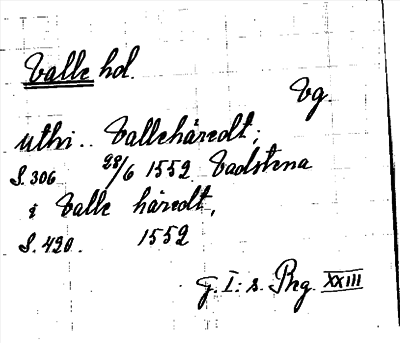 Valle hd.
Vg.
uthi .. Vallehäredt;
S. 306 28/6 1552 Vadstena
i Valle häredt,
S. 420. 1552
G. I:s. Rng. XXIII